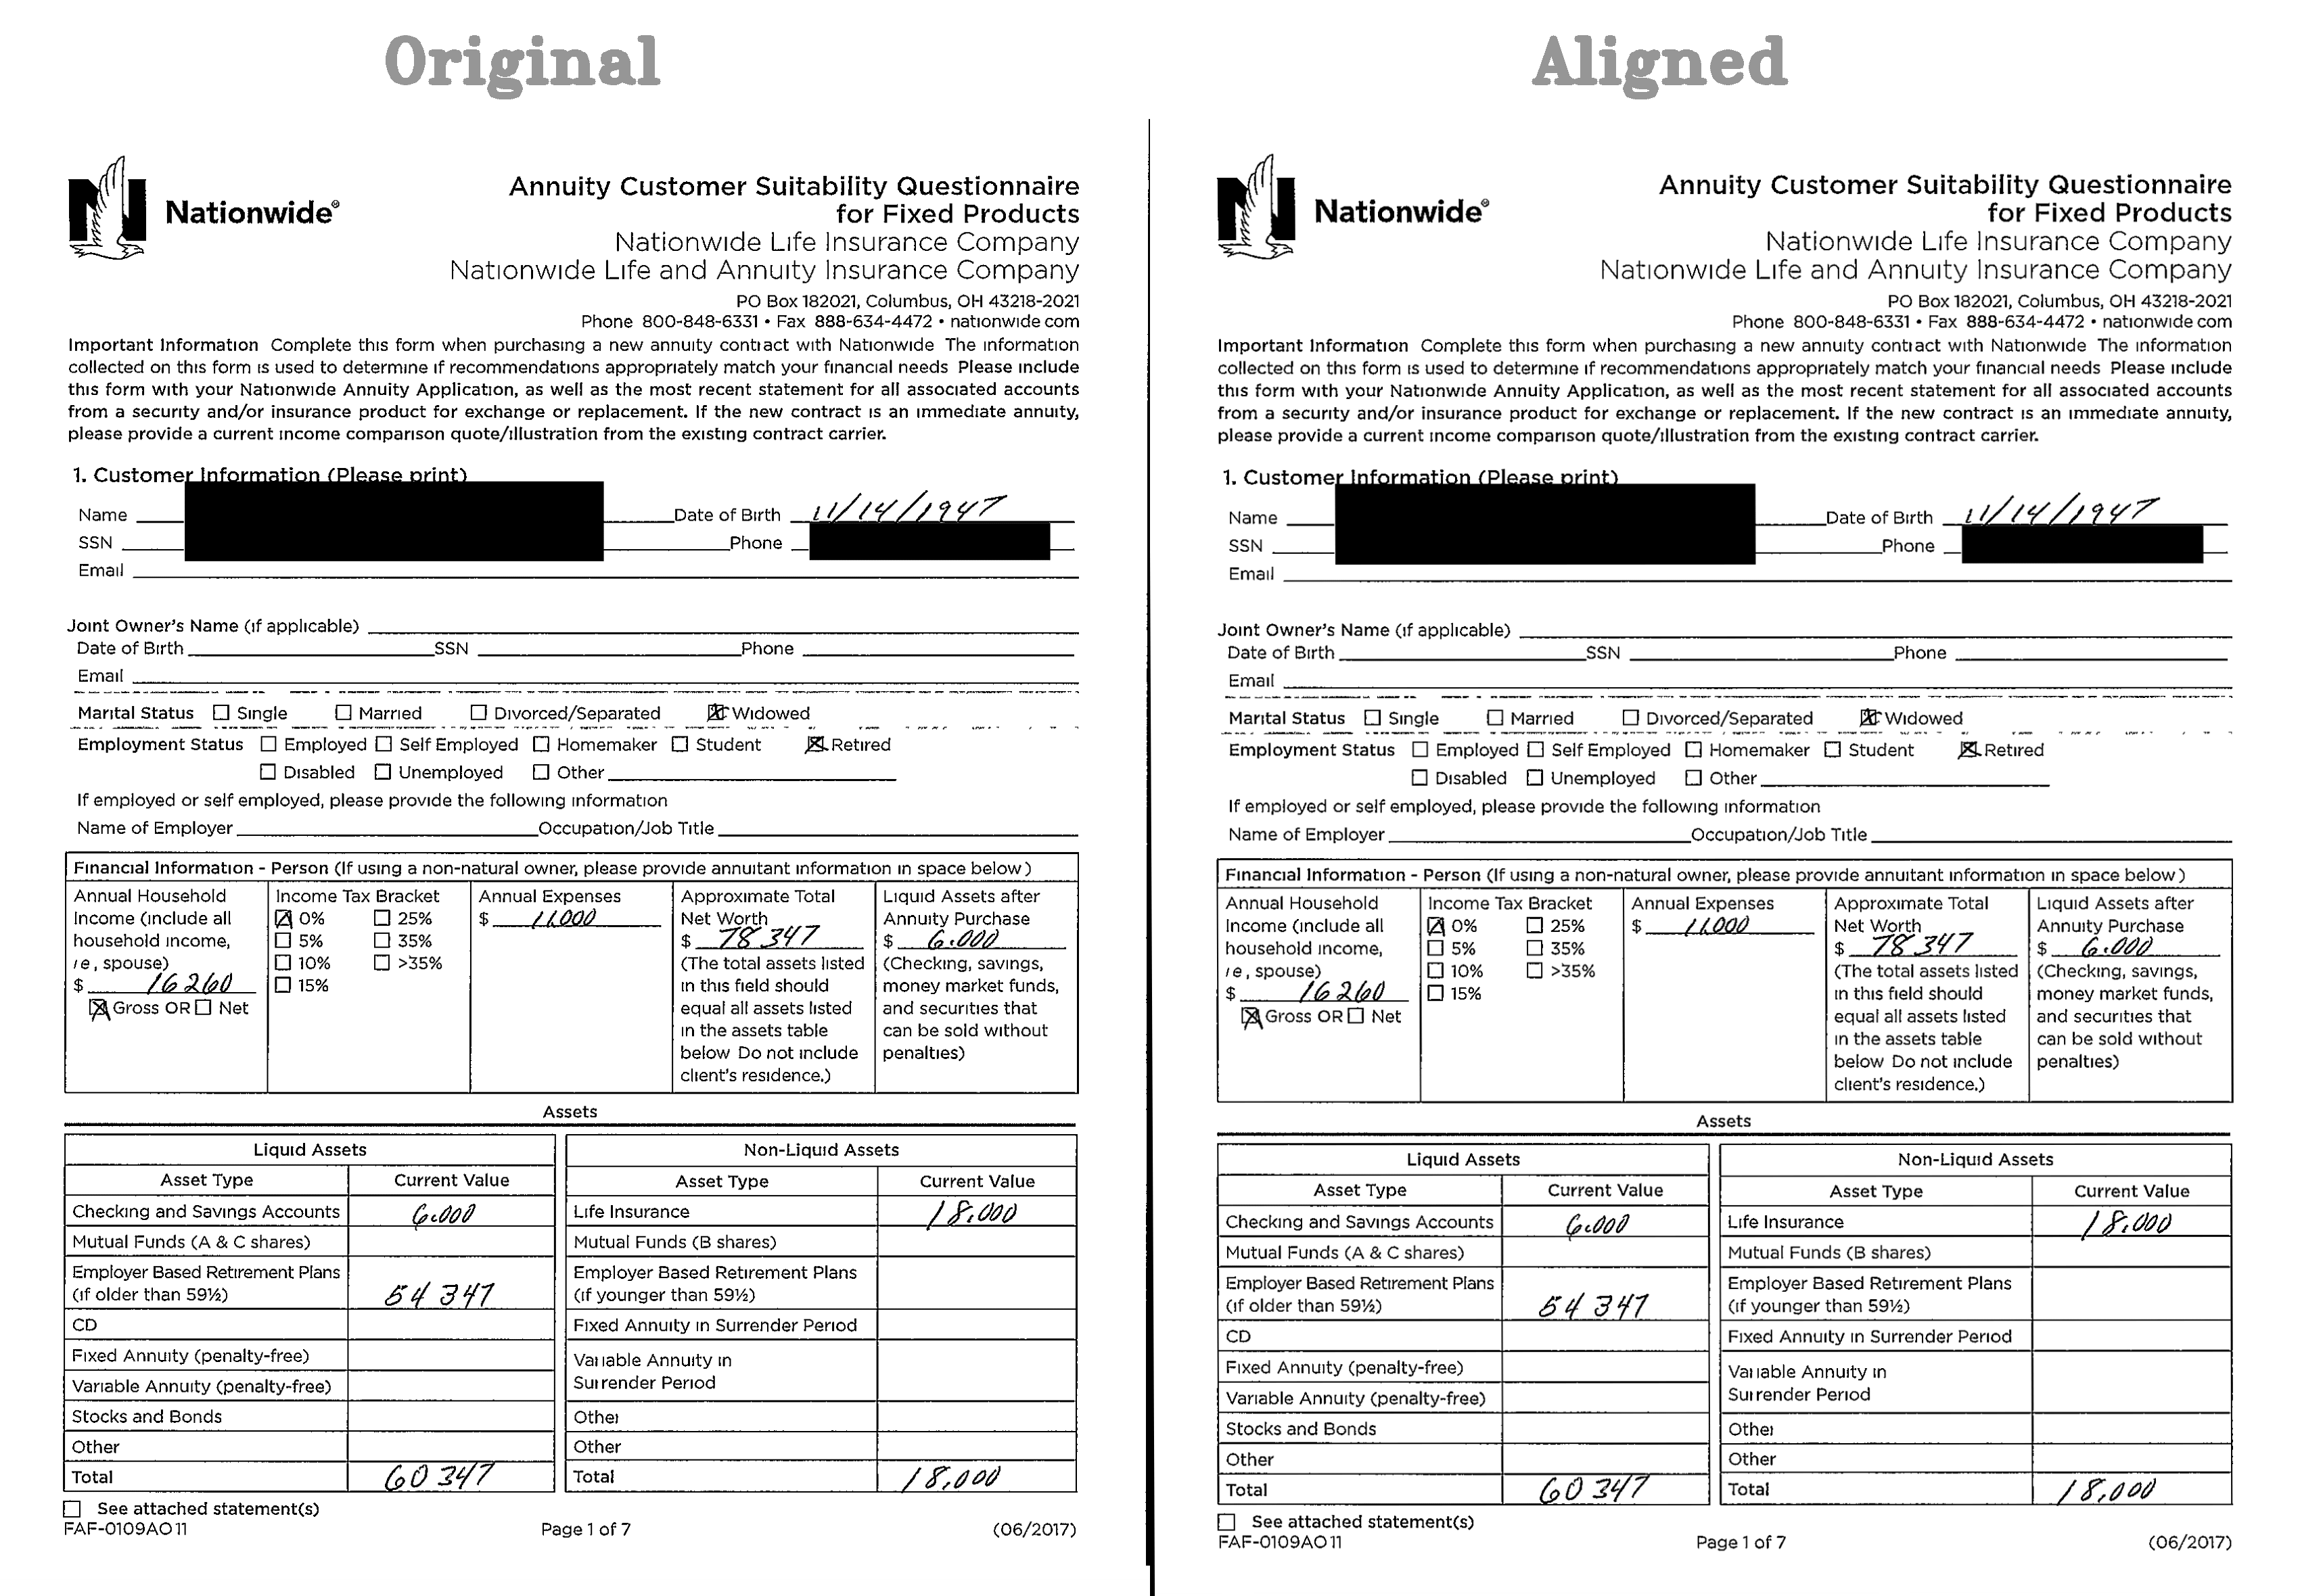 Original
Nationwide®
Annuity Customer Suitability Questionnaire
for Fixed Products
Nationwide Life Insurance Company
Nationwide Life and Annuity Insurance Company
PO Box 182021, Columbus, OH 43218-2021
Phone 800-848-6331 • Fax 888-634-4472 • nationwide com
Important Information Complete this form when purchasing a new annuity contract with Nationwide The information
collected on this form is used to determine if recommendations appropriately match your financial needs Please include
this form with your Nationwide Annuity Application, as well as the most recent statement for all associated accounts
from a security and/or insurance product for exchange or replacement. If the new contract is an immediate annuity,
please provide a current income comparison quote/illustration from the existing contract carrier.
1. Customer Information (Please print)
Name Date of Birth 11/14/1947
SSN Phone
Email
Joint Owner's Name (if applicable)
Date of Birth SSN Phone
Email
Marital Status Single Married Divorced/Separated Widowed
Employment Status Employed Self Employed Homemaker Student Retired
Disabled Unemployed Other
If employed or self employed, please provide the following information
Name of Employer Occupation/Job Title
Financial Information - Person (If using a non-natural owner, please provide annuitant information in space below)
Annual Household
Income (include all
household income,
ie, spouse)
$ 16260
Gross OR Net
Income Tax Bracket
0% 25%
5% 35%
10% >35%
15%
Annual Expenses
$ 11000
Approximate Total
Net Worth
$ 78 347
(The total assets listed
in this field should
equal all assets listed
in the assets table
below Do not include
client's residence.)
Liquid Assets after
Annuity Purchase
$ 6,000
(Checking, savings,
money market funds,
and securities that
can be sold without
penalties)
Assets
Liquid Assets
Asset Type Current Value
Checking and Savings Accounts 6,000
Mutual Funds (A & C shares)
Employer Based Retirement Plans
(if older than 59½) 54 347
CD
Fixed Annuity (penalty-free)
Variable Annuity (penalty-free)
Stocks and Bonds
Other
Total 60 347
Non-Liquid Assets
Asset Type Current Value
Life Insurance 18,000
Mutual Funds (B shares)
Employer Based Retirement Plans
(if younger than 59½)
Fixed Annuity in Surrender Period
Variable Annuity in
Surrender Period
Other
Other
Total 18,000
See attached statement(s)
FAF-0109AO 11 Page 1 of 7 (06/2017)
Aligned
Nationwide®
Annuity Customer Suitability Questionnaire
for Fixed Products
Nationwide Life Insurance Company
Nationwide Life and Annuity Insurance Company
PO Box 182021, Columbus, OH 43218-2021
Phone 800-848-6331 • Fax 888-634-4472 • nationwide com
Important Information Complete this form when purchasing a new annuity contract with Nationwide The information
collected on this form is used to determine if recommendations appropriately match your financial needs Please include
this form with your Nationwide Annuity Application, as well as the most recent statement for all associated accounts
from a security and/or insurance product for exchange or replacement. If the new contract is an immediate annuity,
please provide a current income comparison quote/illustration from the existing contract carrier.
1. Customer Information (Please print)
Name Date of Birth 11/14/1947
SSN Phone
Email
Joint Owner's Name (if applicable)
Date of Birth SSN Phone
Email
Marital Status Single Married Divorced/Separated Widowed
Employment Status Employed Self Employed Homemaker Student Retired
Disabled Unemployed Other
If employed or self employed, please provide the following information
Name of Employer Occupation/Job Title
Financial Information - Person (If using a non-natural owner, please provide annuitant information in space below)
Annual Household
Income (include all
household income,
ie, spouse)
$ 16260
Gross OR Net
Income Tax Bracket
0% 25%
5% 35%
10% >35%
15%
Annual Expenses
$ 11000
Approximate Total
Net Worth
$ 78 347
(The total assets listed
in this field should
equal all assets listed
in the assets table
below Do not include
client's residence.)
Liquid Assets after
Annuity Purchase
$ 6,000
(Checking, savings,
money market funds,
and securities that
can be sold without
penalties)
Assets
Liquid Assets
Asset Type Current Value
Checking and Savings Accounts 6,000
Mutual Funds (A & C shares)
Employer Based Retirement Plans
(if older than 59½) 54 347
CD
Fixed Annuity (penalty-free)
Variable Annuity (penalty-free)
Stocks and Bonds
Other
Total 60 347
Non-Liquid Assets
Asset Type Current Value
Life Insurance 18,000
Mutual Funds (B shares)
Employer Based Retirement Plans
(if younger than 59½)
Fixed Annuity in Surrender Period
Variable Annuity in
Surrender Period
Other
Other
Total 18,000
See attached statement(s)
FAF-0109AO 11 Page 1 of 7 (06/2017)